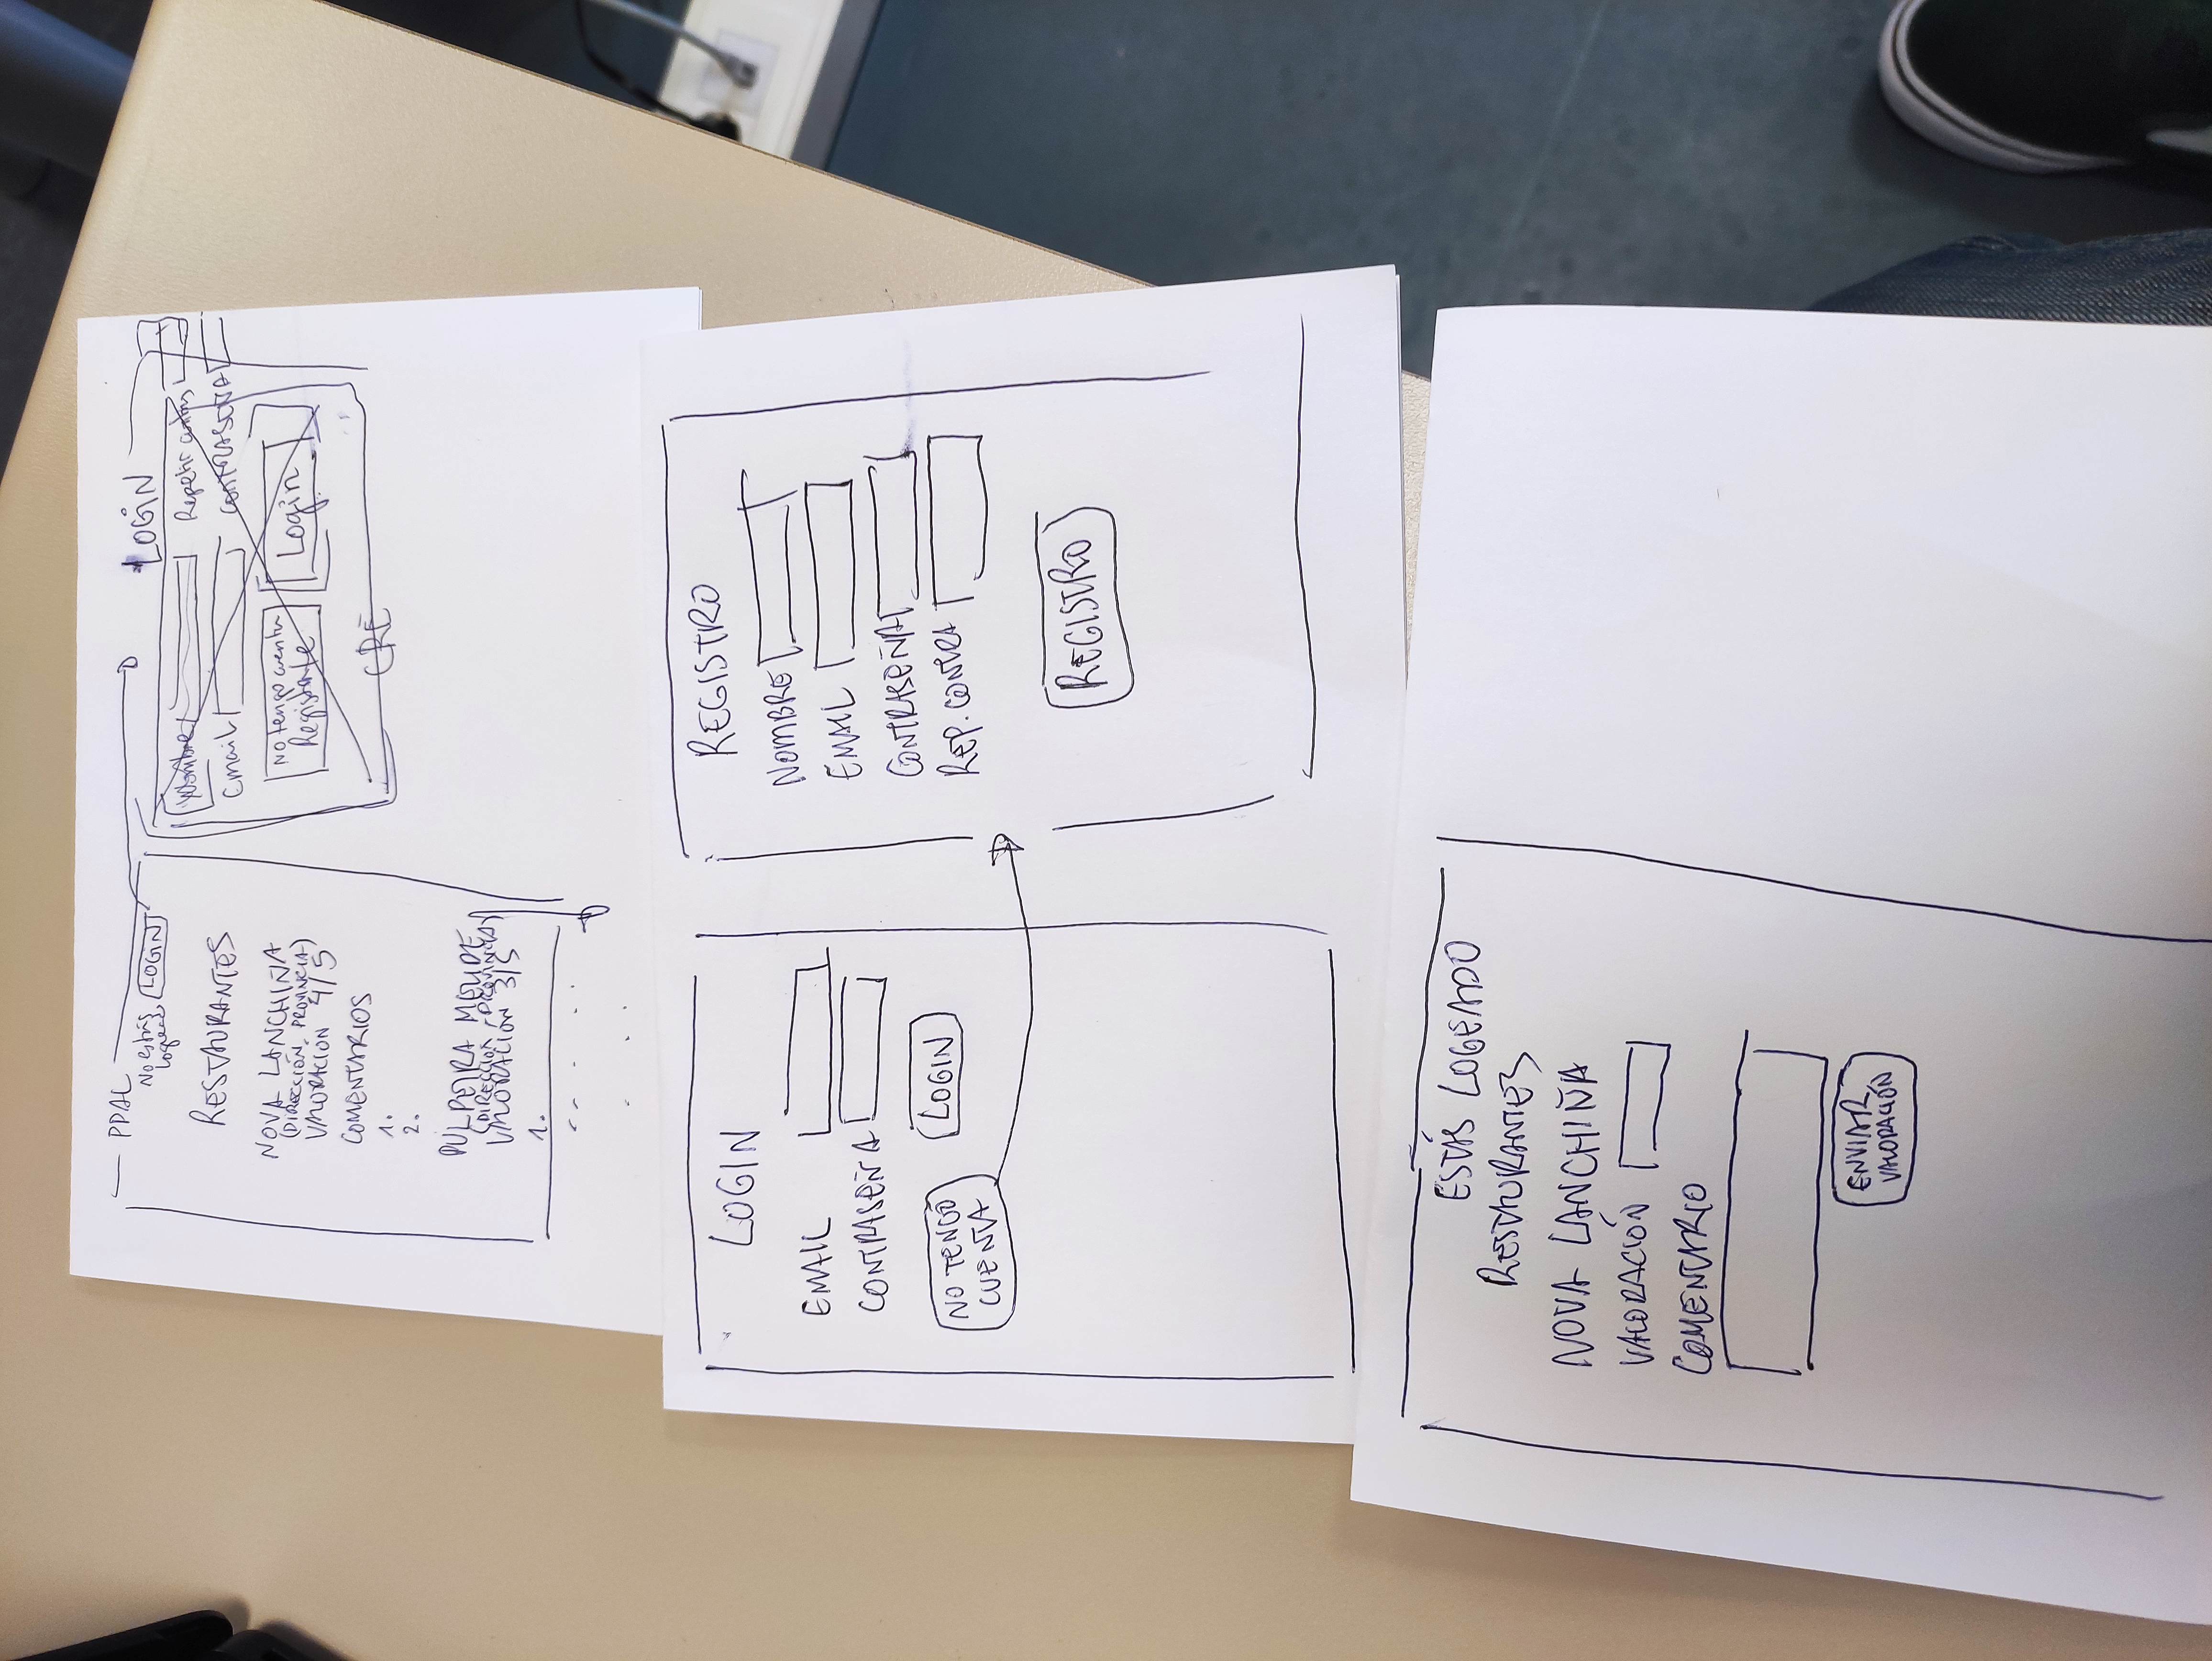 PPAL
No estás
logueado
LOGIN
RESTAURANTES
NOVA LANCHIÑA
(DIRECCIÓN, PROVINCIA)
VALORACIÓN 4/5
COMENTARIOS
1.
2.
PULPEIRA MELIDE
(DIRECCIÓN, PROVINCIA)
VALORACIÓN 3/5
1.
LOGIN
Nombre
Repetir
Email
CONTRASEÑA
No tengo cuenta
Login
CRE
LOGIN
EMAIL
CONTRASEÑA
NO TENGO
CUENTA
LOGIN
REGISTRO
NOMBRE
EMAIL
CONTRASEÑA
REP. CONTRA
REGISTRO
ESTÁS LOGEADO
RESTAURANTES
NOVA LANCHIÑA
VALORACIÓN
COMENTARIO
ENVIAR
VALORACIÓN